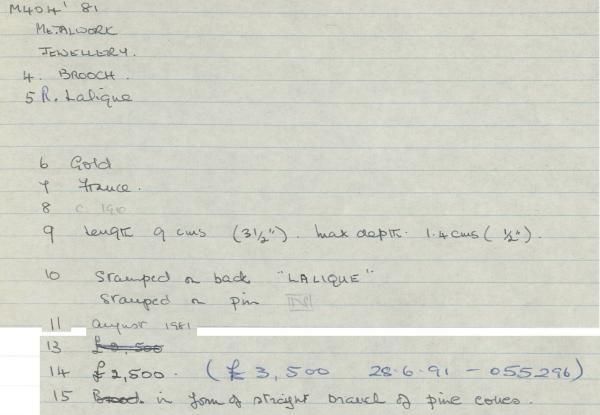 M404' 81
METALWORK
JEWELLERY.
4. BROOCH.
5 R. Lalique
6 Gold
7 France.
8 c. 190
9 Length 9 cms (3 1/2"). Max depth. 1.4 cms (1/2").
10 Stamped on back "LALIQUE"
Stamped on pin
11 August 1981
13
14 £2,500. (£3,500 28.6.91 - 055296)
15 in form of straight branch of pine cones.